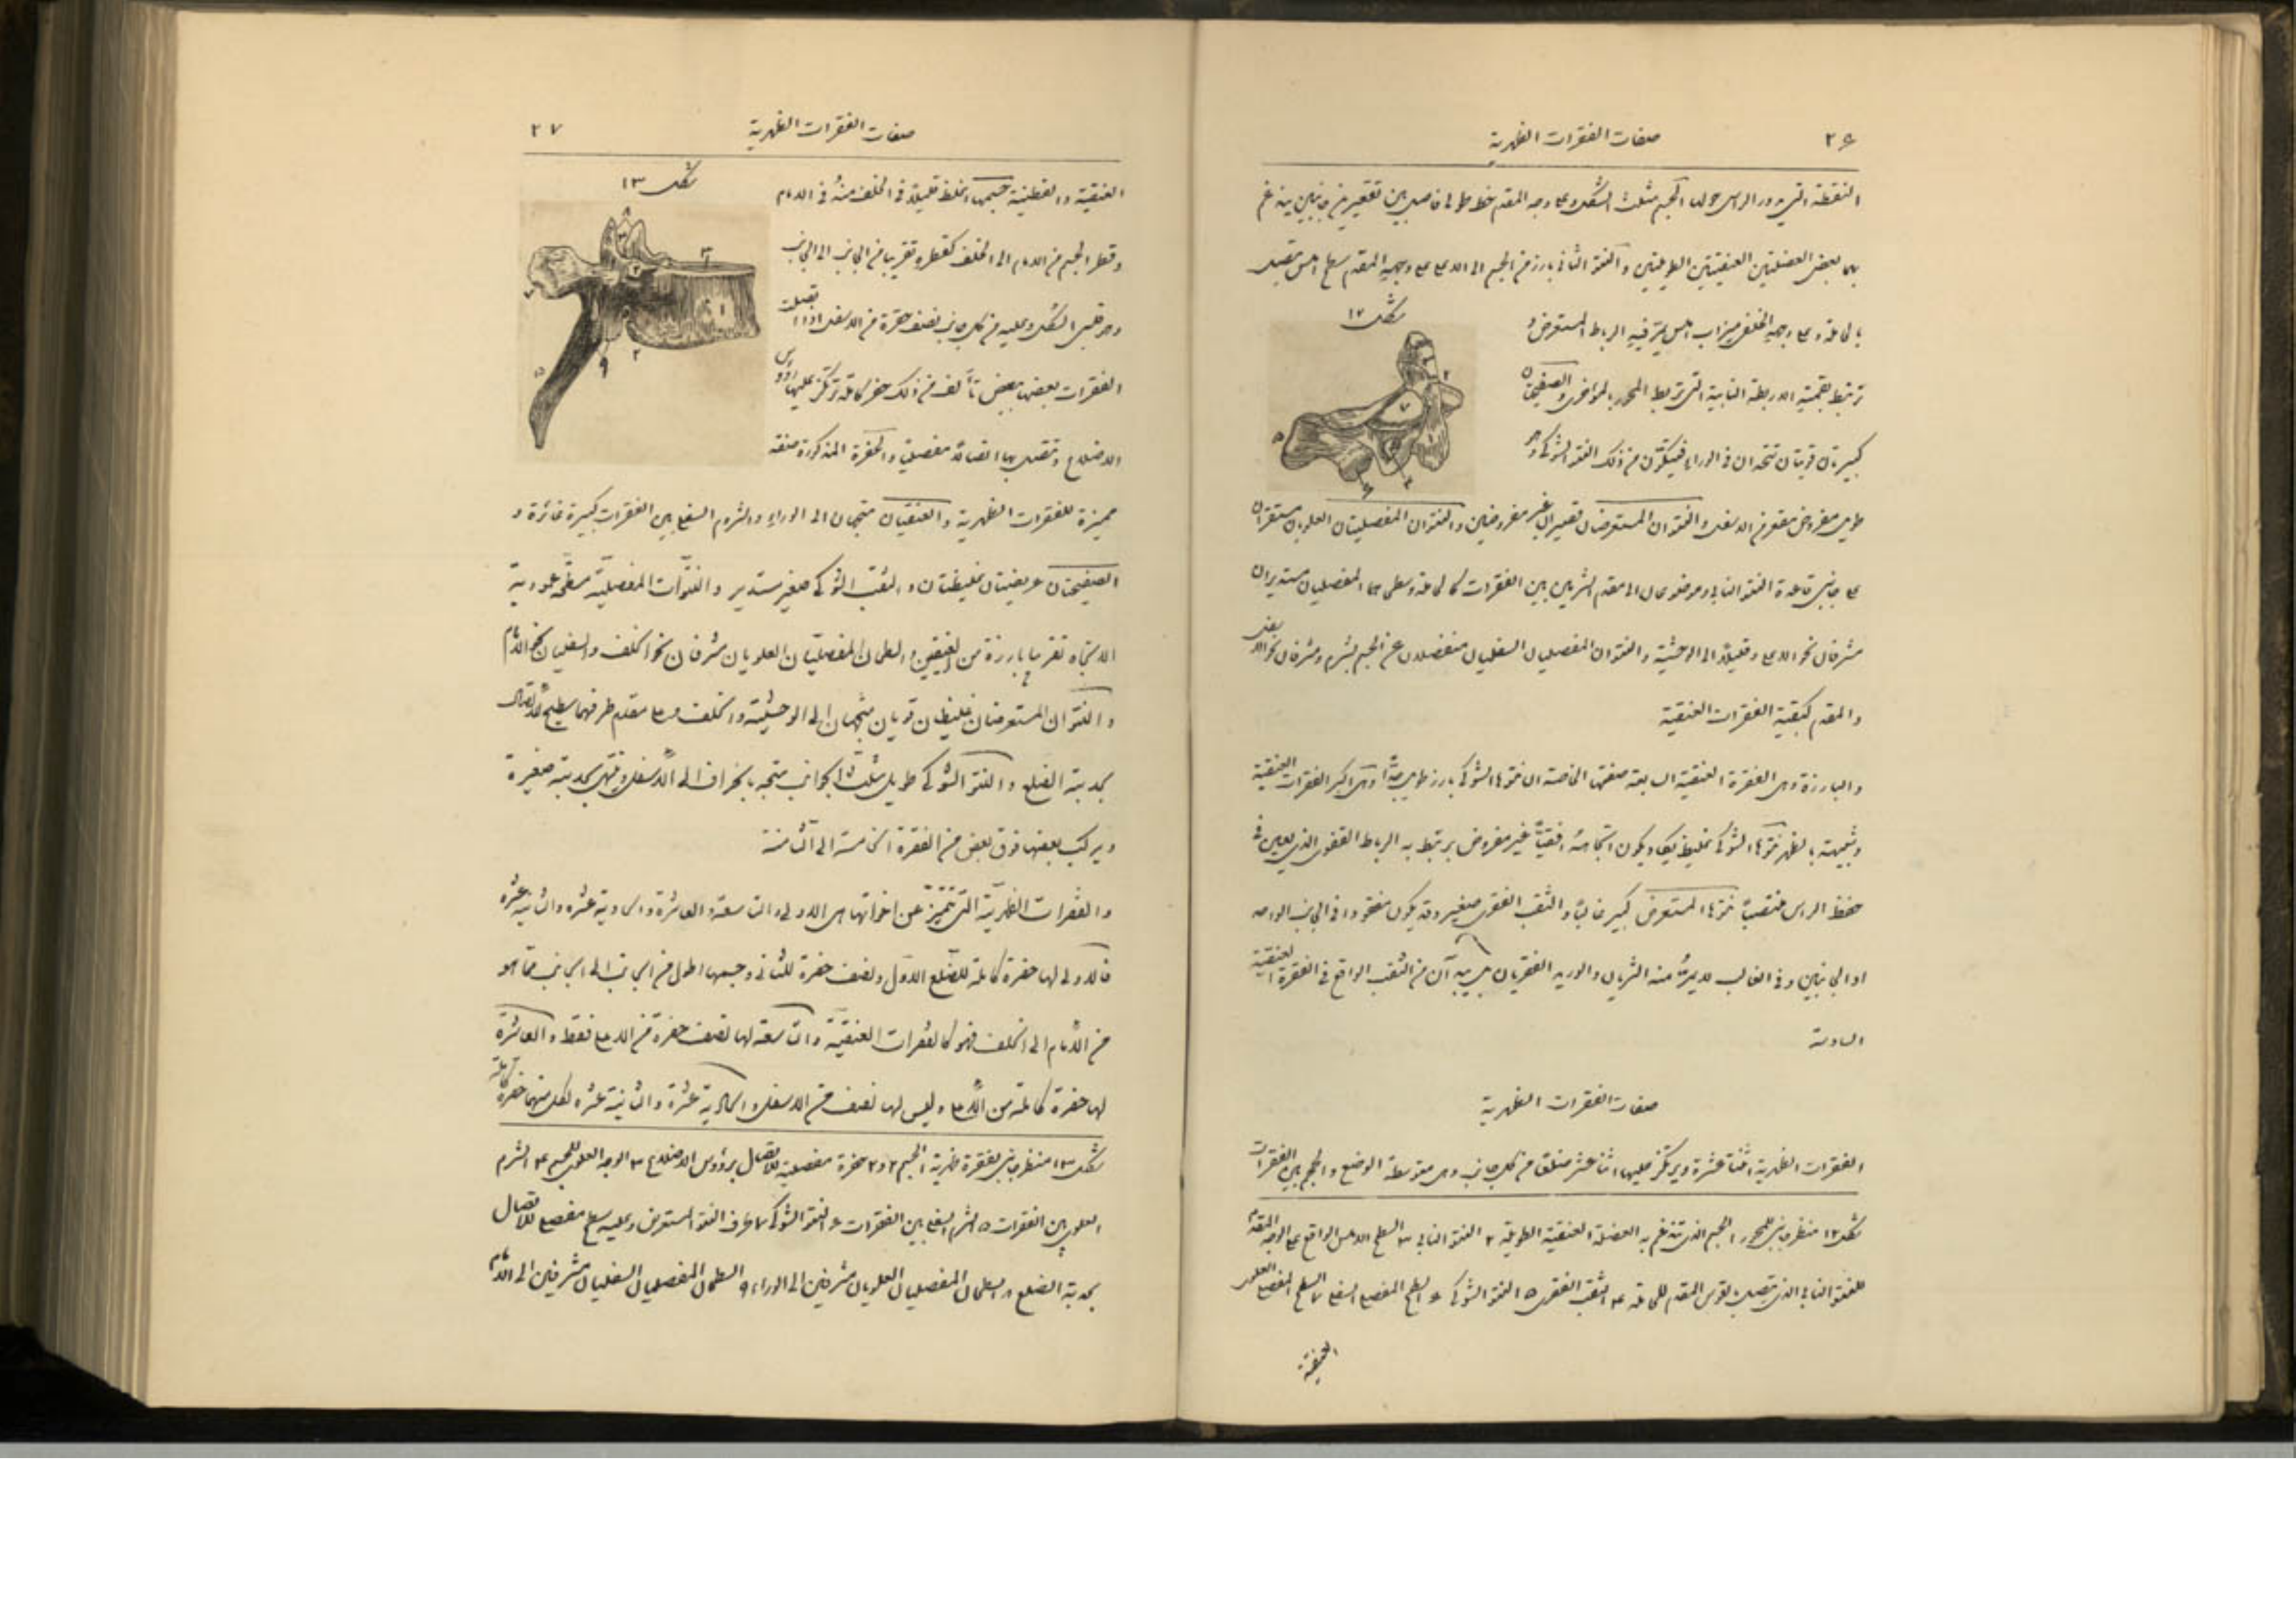 ٢٦ صفات الفقرات الظهرية
النقطة التي يدور الراس حولها الجسم مثلث الشكل وعلى وجهه المقدم خط طولي فاصل بين تقعيرين جانبيين يندغم
بهما بعض العضلتين العنقيتين الطويلتين والنتو الثاني بارز من الجسم الى الاعلى على وجهه المقدم سطح املس يتصل
شكل ١٢
بالحاملة وعلى وجهه الخلفي ميزاب املس يمر فيه الرباط المستعرض و
ترتبط بقمته الاربطة النابية التي تربط المحور بالمؤخري والصفيحتان
كبيرتان قويتان تتحدان في الوراء فيتكون من ذلك النتو الشوكي وهو
طويل مفروض مقعر من الاسفل والنتوان المستعرضان قصيران غير مفروضين والنتوان المفصليتان العلويان مستقران
على جانبي قاعدة النتو النابي وموضوعان الى مقدم الشرمين بين الفقرات كالحاملة وسطحاهما المفصليان مستديران
مشرفان نحو الاعلى وقليلاً الى الوحشية والنتوان المفصليان السفليان منفصلان عن الجسم بشرم ومشرفان نحو الاسفل
والمقدم كبقية الفقرات العنقية
والبارزة وهي الفقرة العنقية السابعة صفتها الخاصة ان نتوها الشوكي بارز طويل جداً وهي اكبر الفقرات العنقية
وشبيهة بالظهرية نتوها الشوكي غليظ ويكون اتجاهه افقياً غير مفروض يرتبط به الرباط القفوي الذي يعين في
حفظ الراس منتصباً نتوها المستعرض كبير غالباً والثقب الفقري صغير وقد يكون مفقودا في الجانب الواحد
او الجانبين وفي الغالب لا يمر منه الشريان والوريد الفقريان بل يبتدآن من الثقب الواقع في الفقرة العنقية
السادسة
صفات الفقرات الظهرية
الفقرات الظهرية اثنتا عشرة ويرتكز عليها اثنا عشر ضلعا من كل جانب وهي متوسطة الوضع والحجم بين الفقرات
شكل ١٢ منظر جانبي للمحور ١ الجسم الذي تندغم به العضلة العنقية الطويلة ٢ النتو النابي ٣ السطح الاملس الواقع على الوجه المقدم
للنتو النابي الذي يتصل بقوس المقدم للحاملة ٤ الثقب الفقري ٥ النتو الشوكي ٦ السطح المفصلي السفلي ٧ السطح المفصلي العلوي
العنقية
صفات الفقرات الظهرية ٢٧
شكل ١٣
العنقية والقطنية جسمها اغلظ قليلاً في الخلف منه في الامام
وقطر الجسم من الامام الى الخلف كقطره تقريبا من الجانب الى الجانب
وهو قلبي الشكل وعليه من كل جانب نصف حفرة من الاسفل اذا اتصلت
الفقرات بعضها ببعض تألف من ذلك حفر كاملة ترتكز عليها رؤوس
الاضلاع وتتصل بها اتصالاً مفصلياً والحفرة المذكورة صفة
مميزة للفقرات الظهرية والعنقيان متجهان الى الوراء والشروم السفلى بين الفقرات كبيرة غائرة و
الصفيحتان عريضتان غليظتان والثقب الشوكي صغير مستدير والنتوآت المفصلية مسطحة عمودية
الاتجاه تقريبا بارزة من العنيقين والسطحان المفصليان العلويان مشرفان نحو الخلف والسفليان نحو الامام
والنتوان المستعرضان غليظان قويان متجهان الى الوحشية والخلف وعلى مقدم طرفهما سطح لاتصال
بحدبة الضلع والنتو الشوكي طويل مثلث الجوانب متجه بانحراف الى الاسفل وينتهي بحدبة صغيرة
ويركب بعضها فوق بعض من الفقرة الخامسة الى الثامنة
والفقرات الظهرية التي تتميز عن اخواتها هي الاولى والتاسعة والعاشرة والحادية عشرة والثانية عشرة
فالاولى لها حفرة كاملة للضلع الاول ونصف حفرة للثاني وجسمها اطول من الجانب الى الجانب مما هو
من الامام الى الخلف فهو كالفقرات العنقية والتاسعة لها نصف حفرة من الاعلى فقط والعاشرة
لها حفرة كاملة من الاعلى وليس لها نصف من الاسفل والحادية عشرة والثانية عشرة لكل منهما حفرة كاملة
شكل ١٣ منظر جانبي لفقرة ظهرية ١ الجسم ٢ و٢ حفرة مفصلية للاتصال برؤوس الاضلاع ٣ الوجه العلوي للجسم ٤ الشرم
العلوي بين الفقرات ٥ الشرم السفلي بين الفقرات ٦ النتو الشوكي ٧ طرف النتو المستعرض وعليه سطح مفصلي للاتصال
بحدبة الضلع ٨ السطحان المفصليان العلويان مشرفين الى الوراء ٩ السطحان المفصليان السفليان مشرفين الى الامام